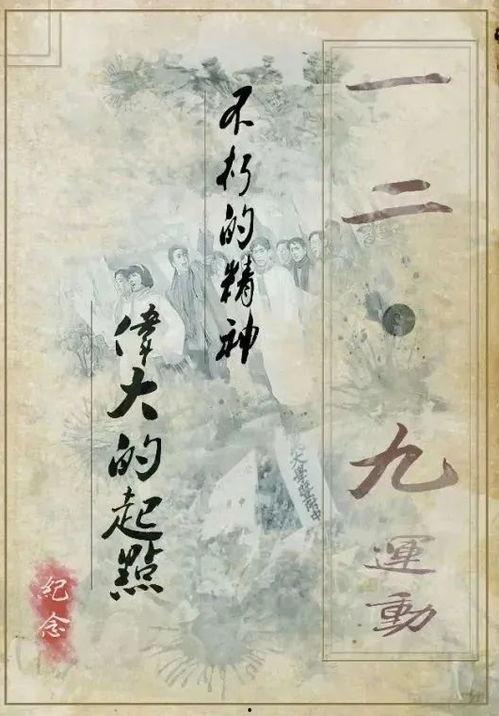 一二·九運動
不朽的精神
偉大的起點
紀念